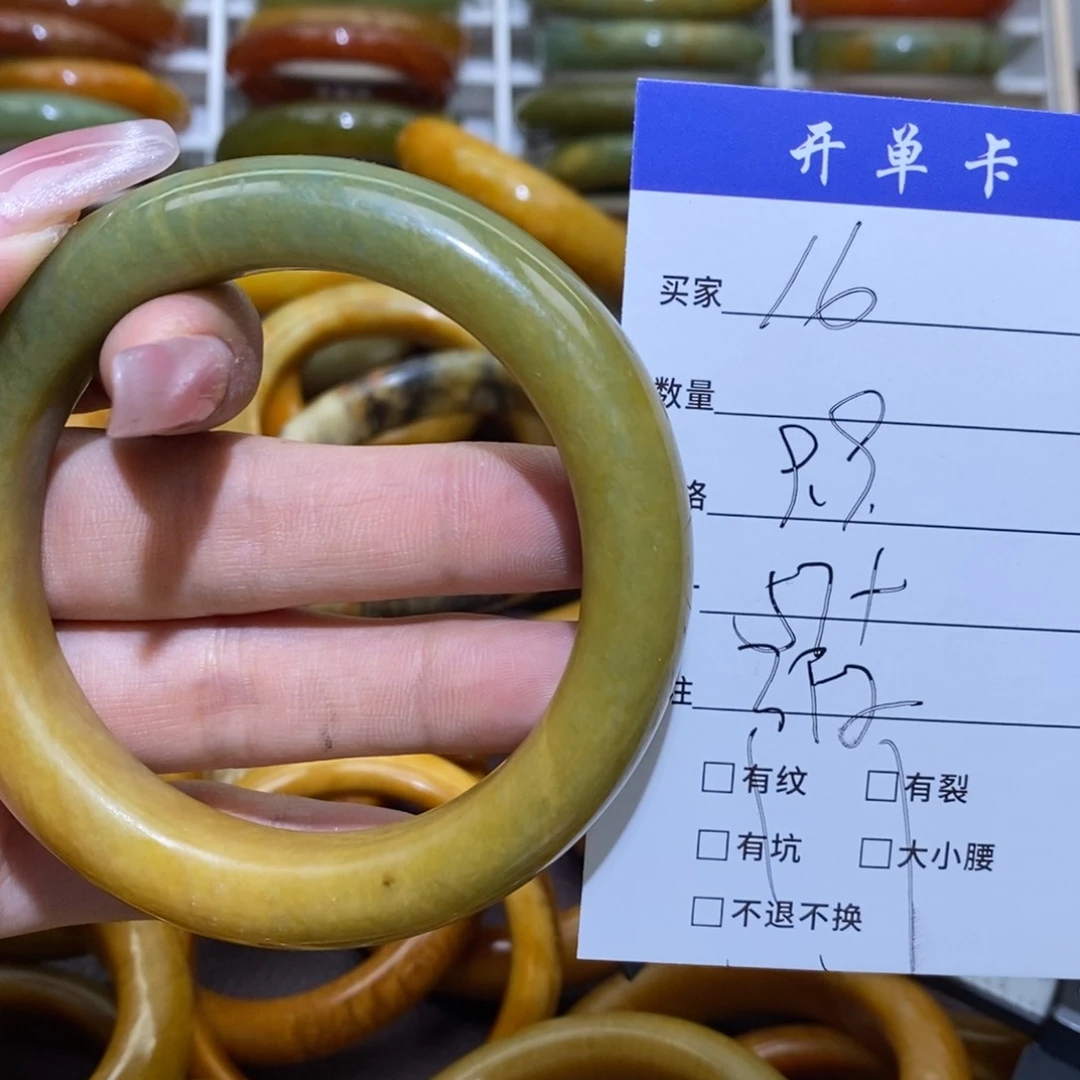 开单卡
买家 16
数量
格
注
□有纹 □有裂
□有坑 □大小腰
□不退不换